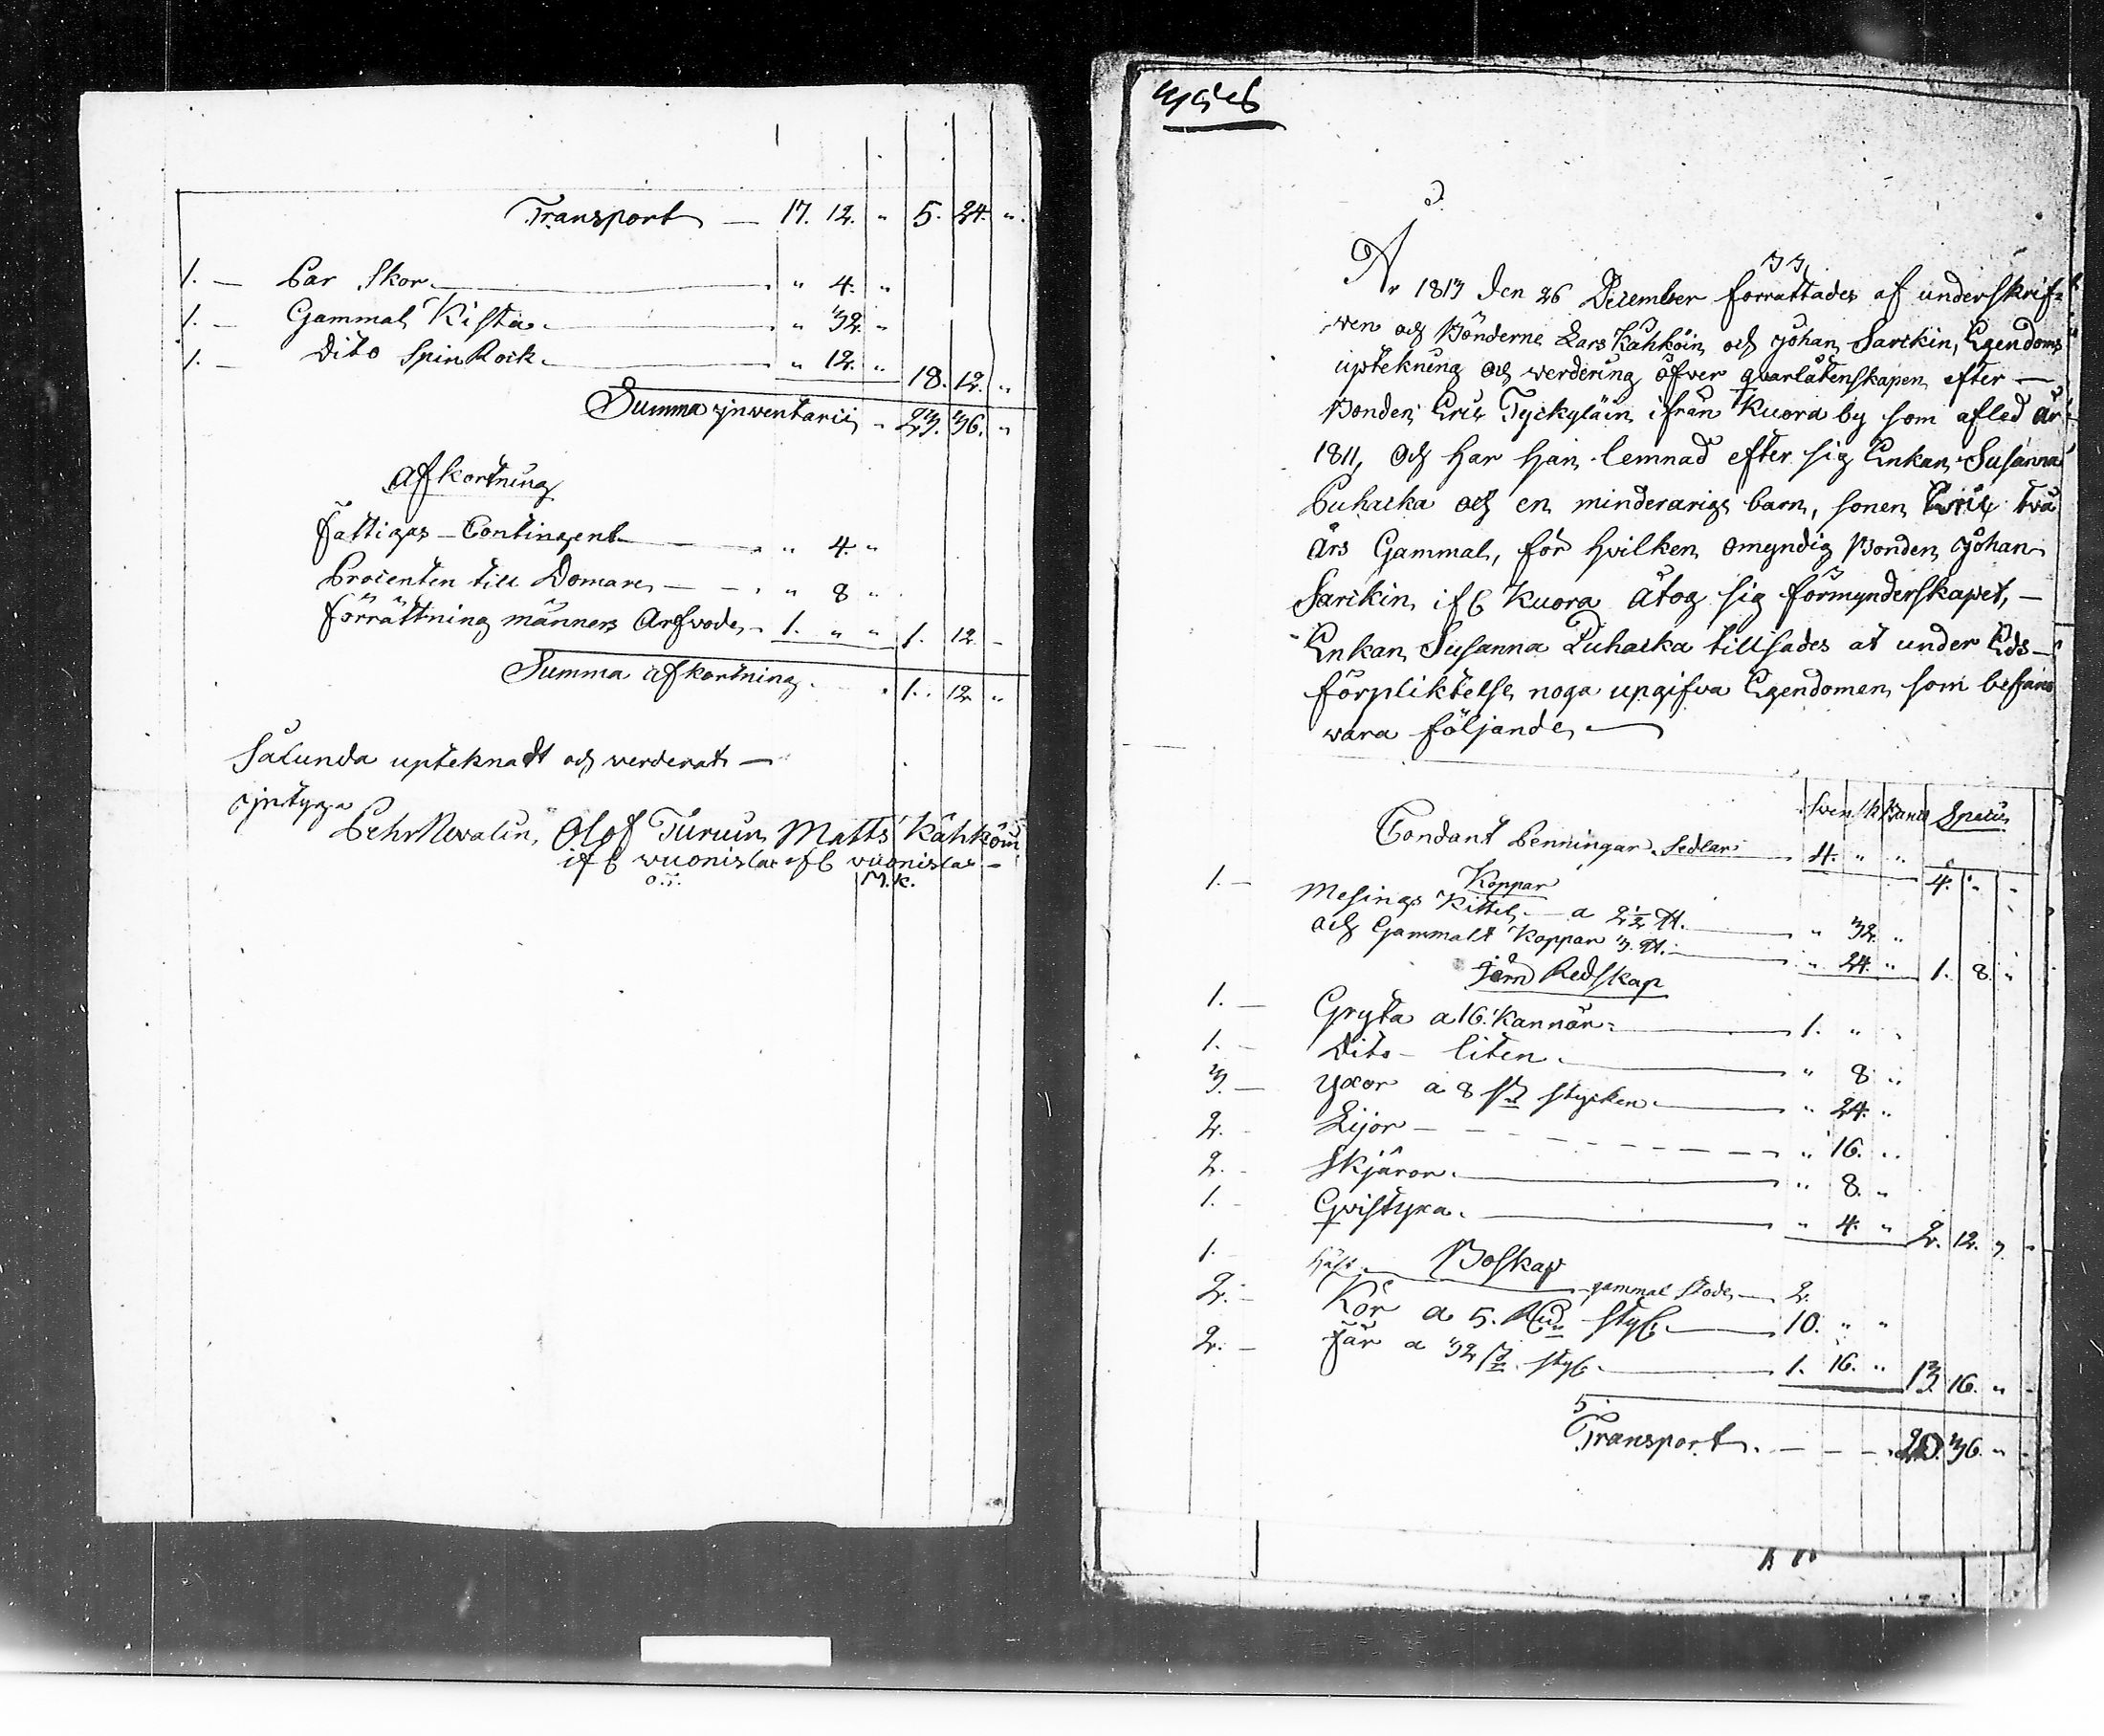 Transport — 17. 12. " 5. 24. "
1. — Par Skor — " 4. "
1. — Gammal Kista — " 32. "
1. — Dito Spin Rock — " 12. " 18. 12. "
Summa jnventarii " 23. 36. "
Afkortning
Fattigas Contingent — " 4. "
Procenten till Domare — " 8 "
Förrättning männers Arfwode 1. " " 1. 12 —
Summa afkortning . 1. 12 "
Sålunda upteknadt och verderat —
Olof Turuin Matts Kähköin
if b wuonislax if b wuonislax —
O. T. M. K.
Ar 1813 den 26 December forrattades af underskrif=
wen och Bönderne Lars Kähköin och Johan Sarikin, Egendoms
uptekning och verdering öfver qvarlåtenskapen efter —
Bonden Eric Tyckyläin ifrån Kuora by som afled år
1811, och har han lemnad efter sig Enkan Susanna
Puhacka och en minderarige barn, sonen Eric två
års Gammal, för hvilken omyndig Bonden Johan
Sarikin if b Kuora åtog sig förmynderskapet, —
Enkan Susanna Puhacka tillsades at under Eds—
förpliktelse noga upgifva Egendomen som befans
wara följande —
Contant Penningar Sedlar 4. " " 4. " "
Koppar
1. — Mesings Kittel — a 2½ ℔. — " 32. "
och Gammalt Koppar 3. ℔. — " 24. " 1. 8. "
Jern Redskap
1. — Gryta a 16. Kannor — 1. " "
1. — Dito — liten — " 8 "
3. — Yxor a 8 s. stycken — " 24. "
2. — Lijor — " 16. "
2. — Skjäror — " 8. "
1. — Qvistyxa — " 4. " 2. 12. "
Boskap
1. — häst — gammal Stode — 2.
2. — Kor a 5. Rd. styc. — 10. " "
2. — Får a 32 s. styc. — 1. 16. " 13. 16. "
Transport. — — — 20. 36. "